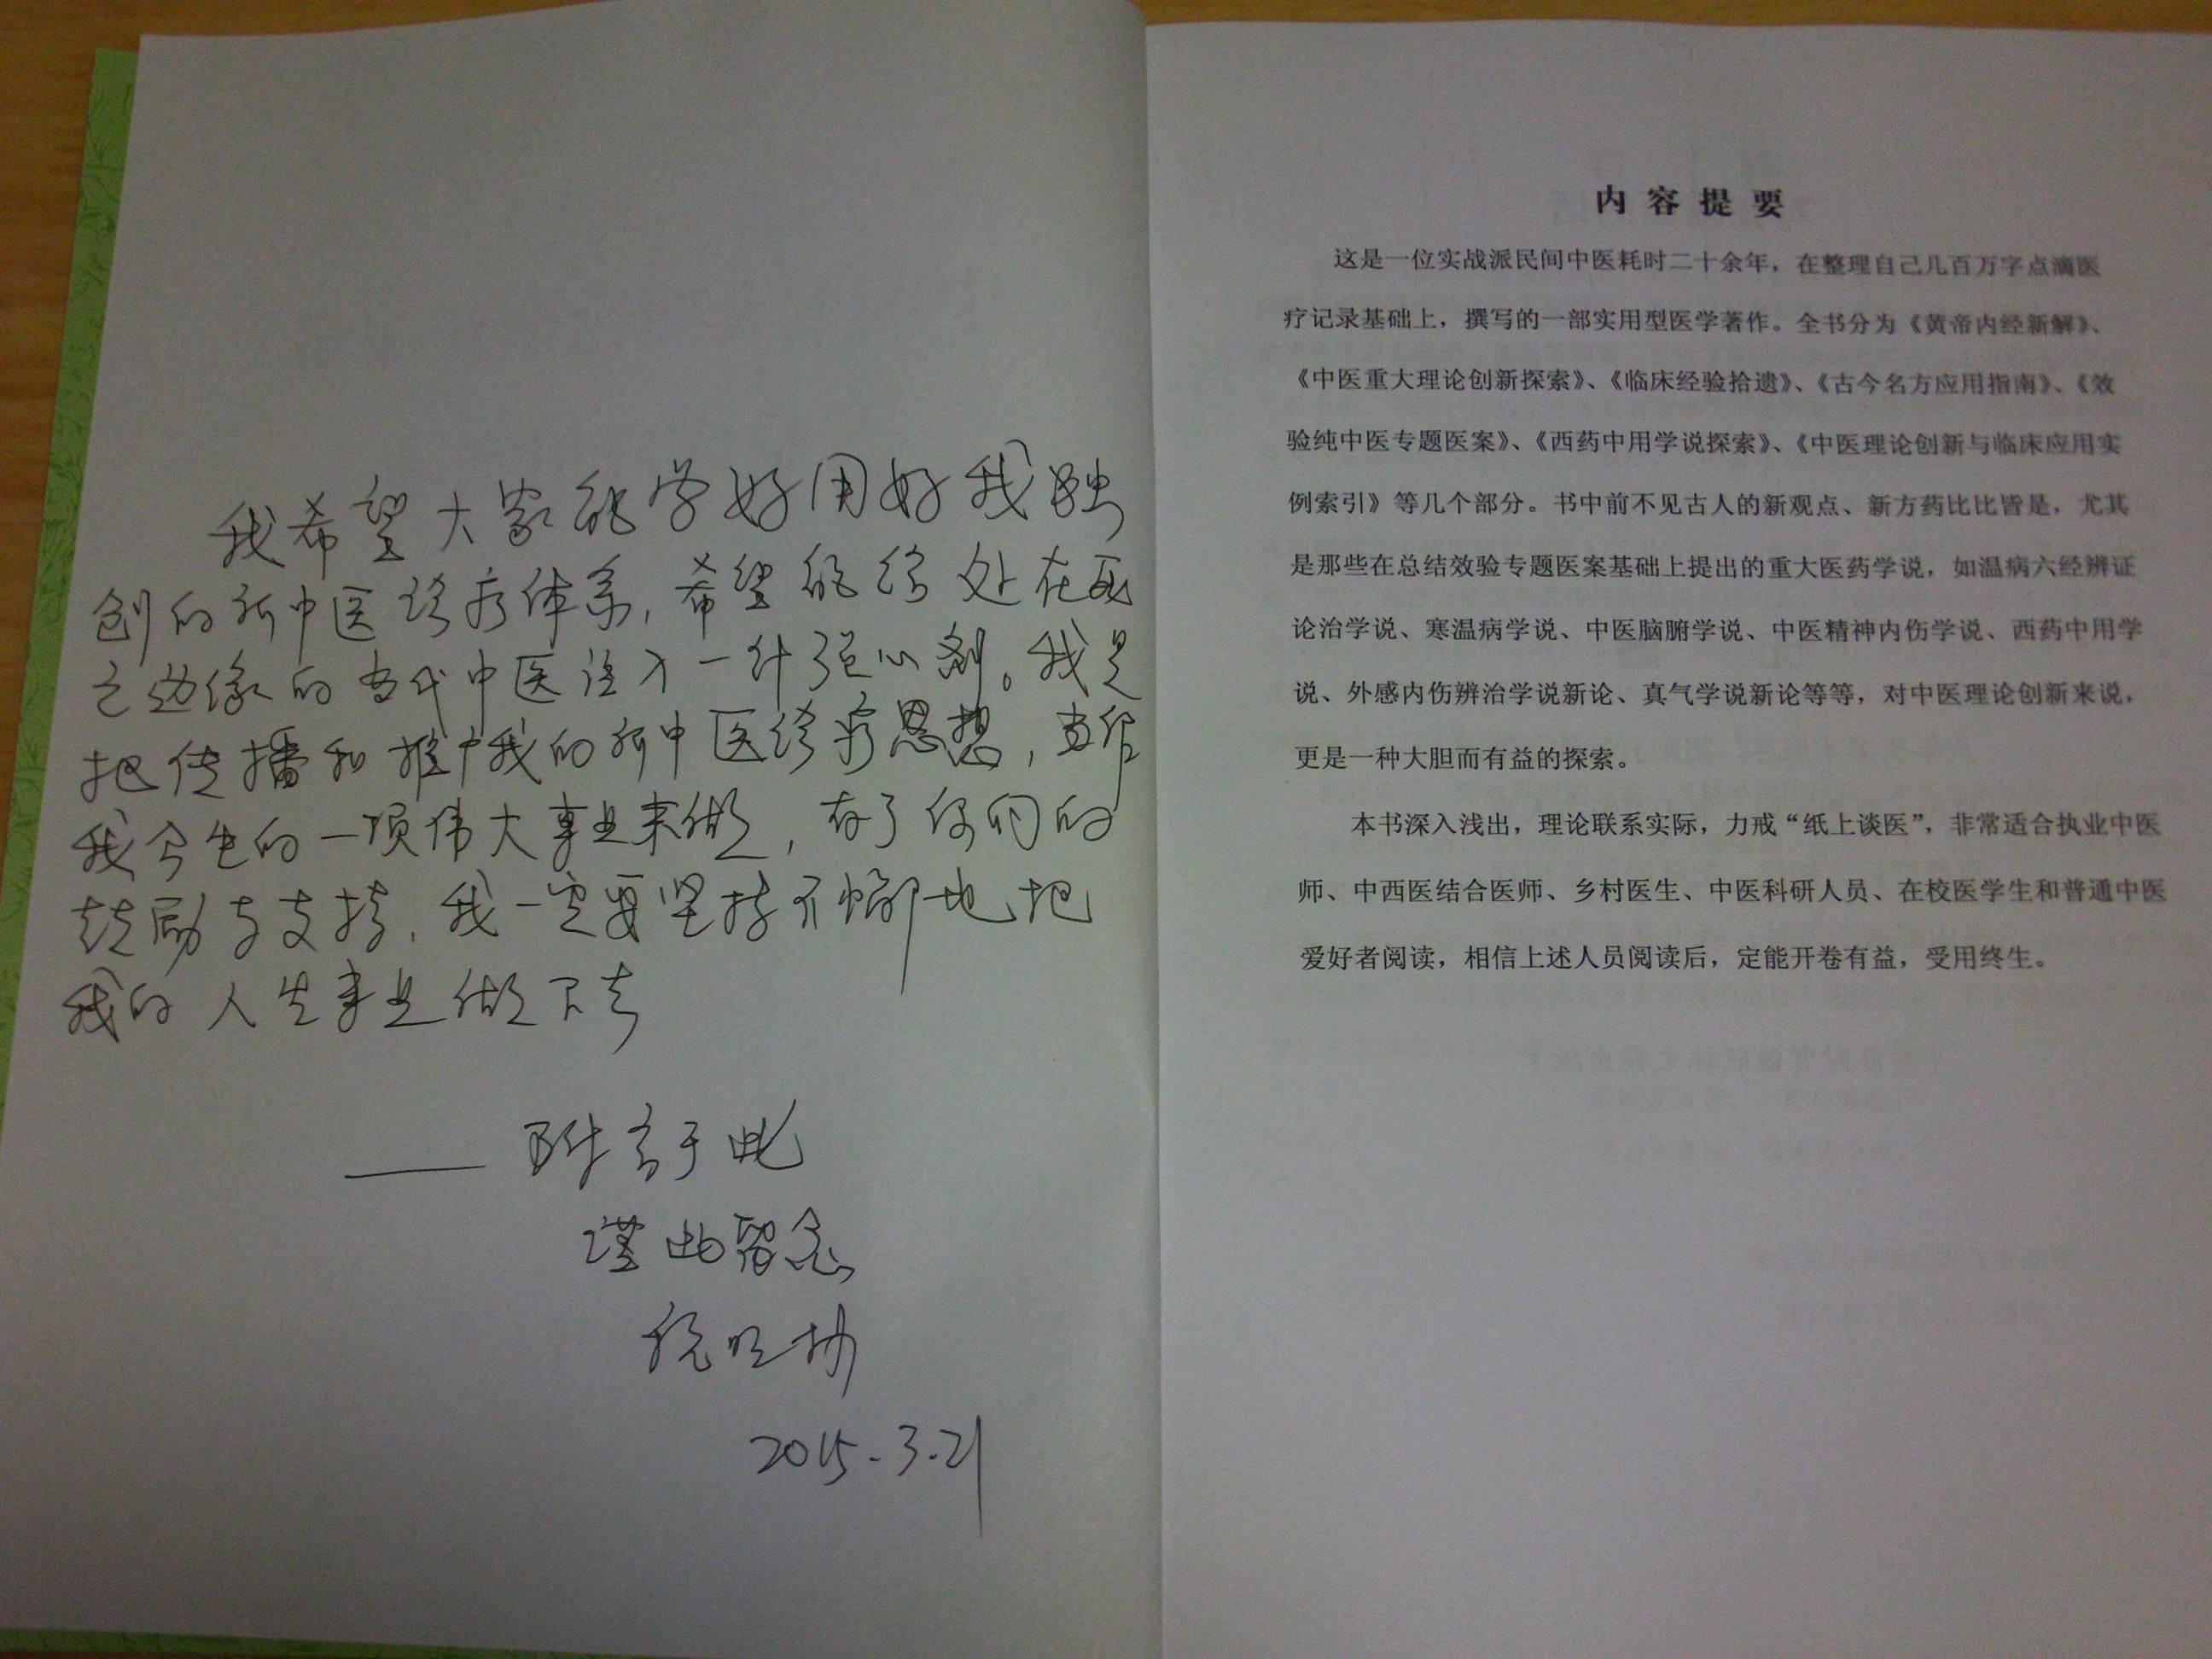 我希望大家能学好用好我独
创的新中医诊疗体系,希望能给处在死
亡边缘的当代中医注入一针强心剂。我是
把传播和推广我的新中医诊疗思想,当作
我今生的一项伟大事业来做,有了你们的
鼓励与支持,我一定要坚持不懈地把
我的人生事业做下去
——附言于此
谨此留念
2015.3.21
内容提要
这是一位实战派民间中医耗时二十余年，在整理自己几百万字点滴医
疗记录基础上，撰写的一部实用型医学著作。全书分为《黄帝内经新解》、
《中医重大理论创新探索》、《临床经验拾遗》、《古今名方应用指南》、《效
验纯中医专题医案》、《西药中用学说探索》、《中医理论创新与临床应用实
例索引》等几个部分。书中前不见古人的新观点、新方药比比皆是，尤其
是那些在总结效验专题医案基础上提出的重大医药学说，如温病六经辨证
论治学说、寒温病学说、中医脑腑学说、中医精神内伤学说、西药中用学
说、外感内伤辨治学说新论、真气学说新论等等，对中医理论创新来说，
更是一种大胆而有益的探索。
本书深入浅出，理论联系实际，力戒“纸上谈医”，非常适合执业中医
师、中西医结合医师、乡村医生、中医科研人员、在校医学生和普通中医
爱好者阅读，相信上述人员阅读后，定能开卷有益，受用终生。